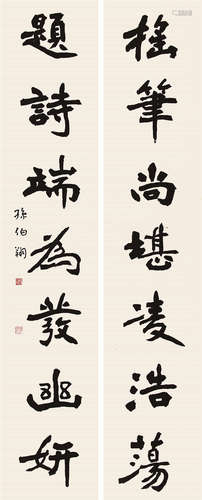 摇筆尚堪凌浩蕩
題詩端為發幽妍
孫伯翔